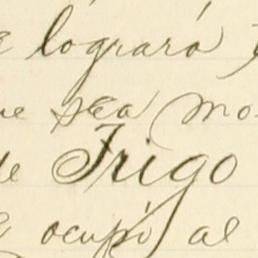 lograró
sea mo
de Trigo
ocupó al